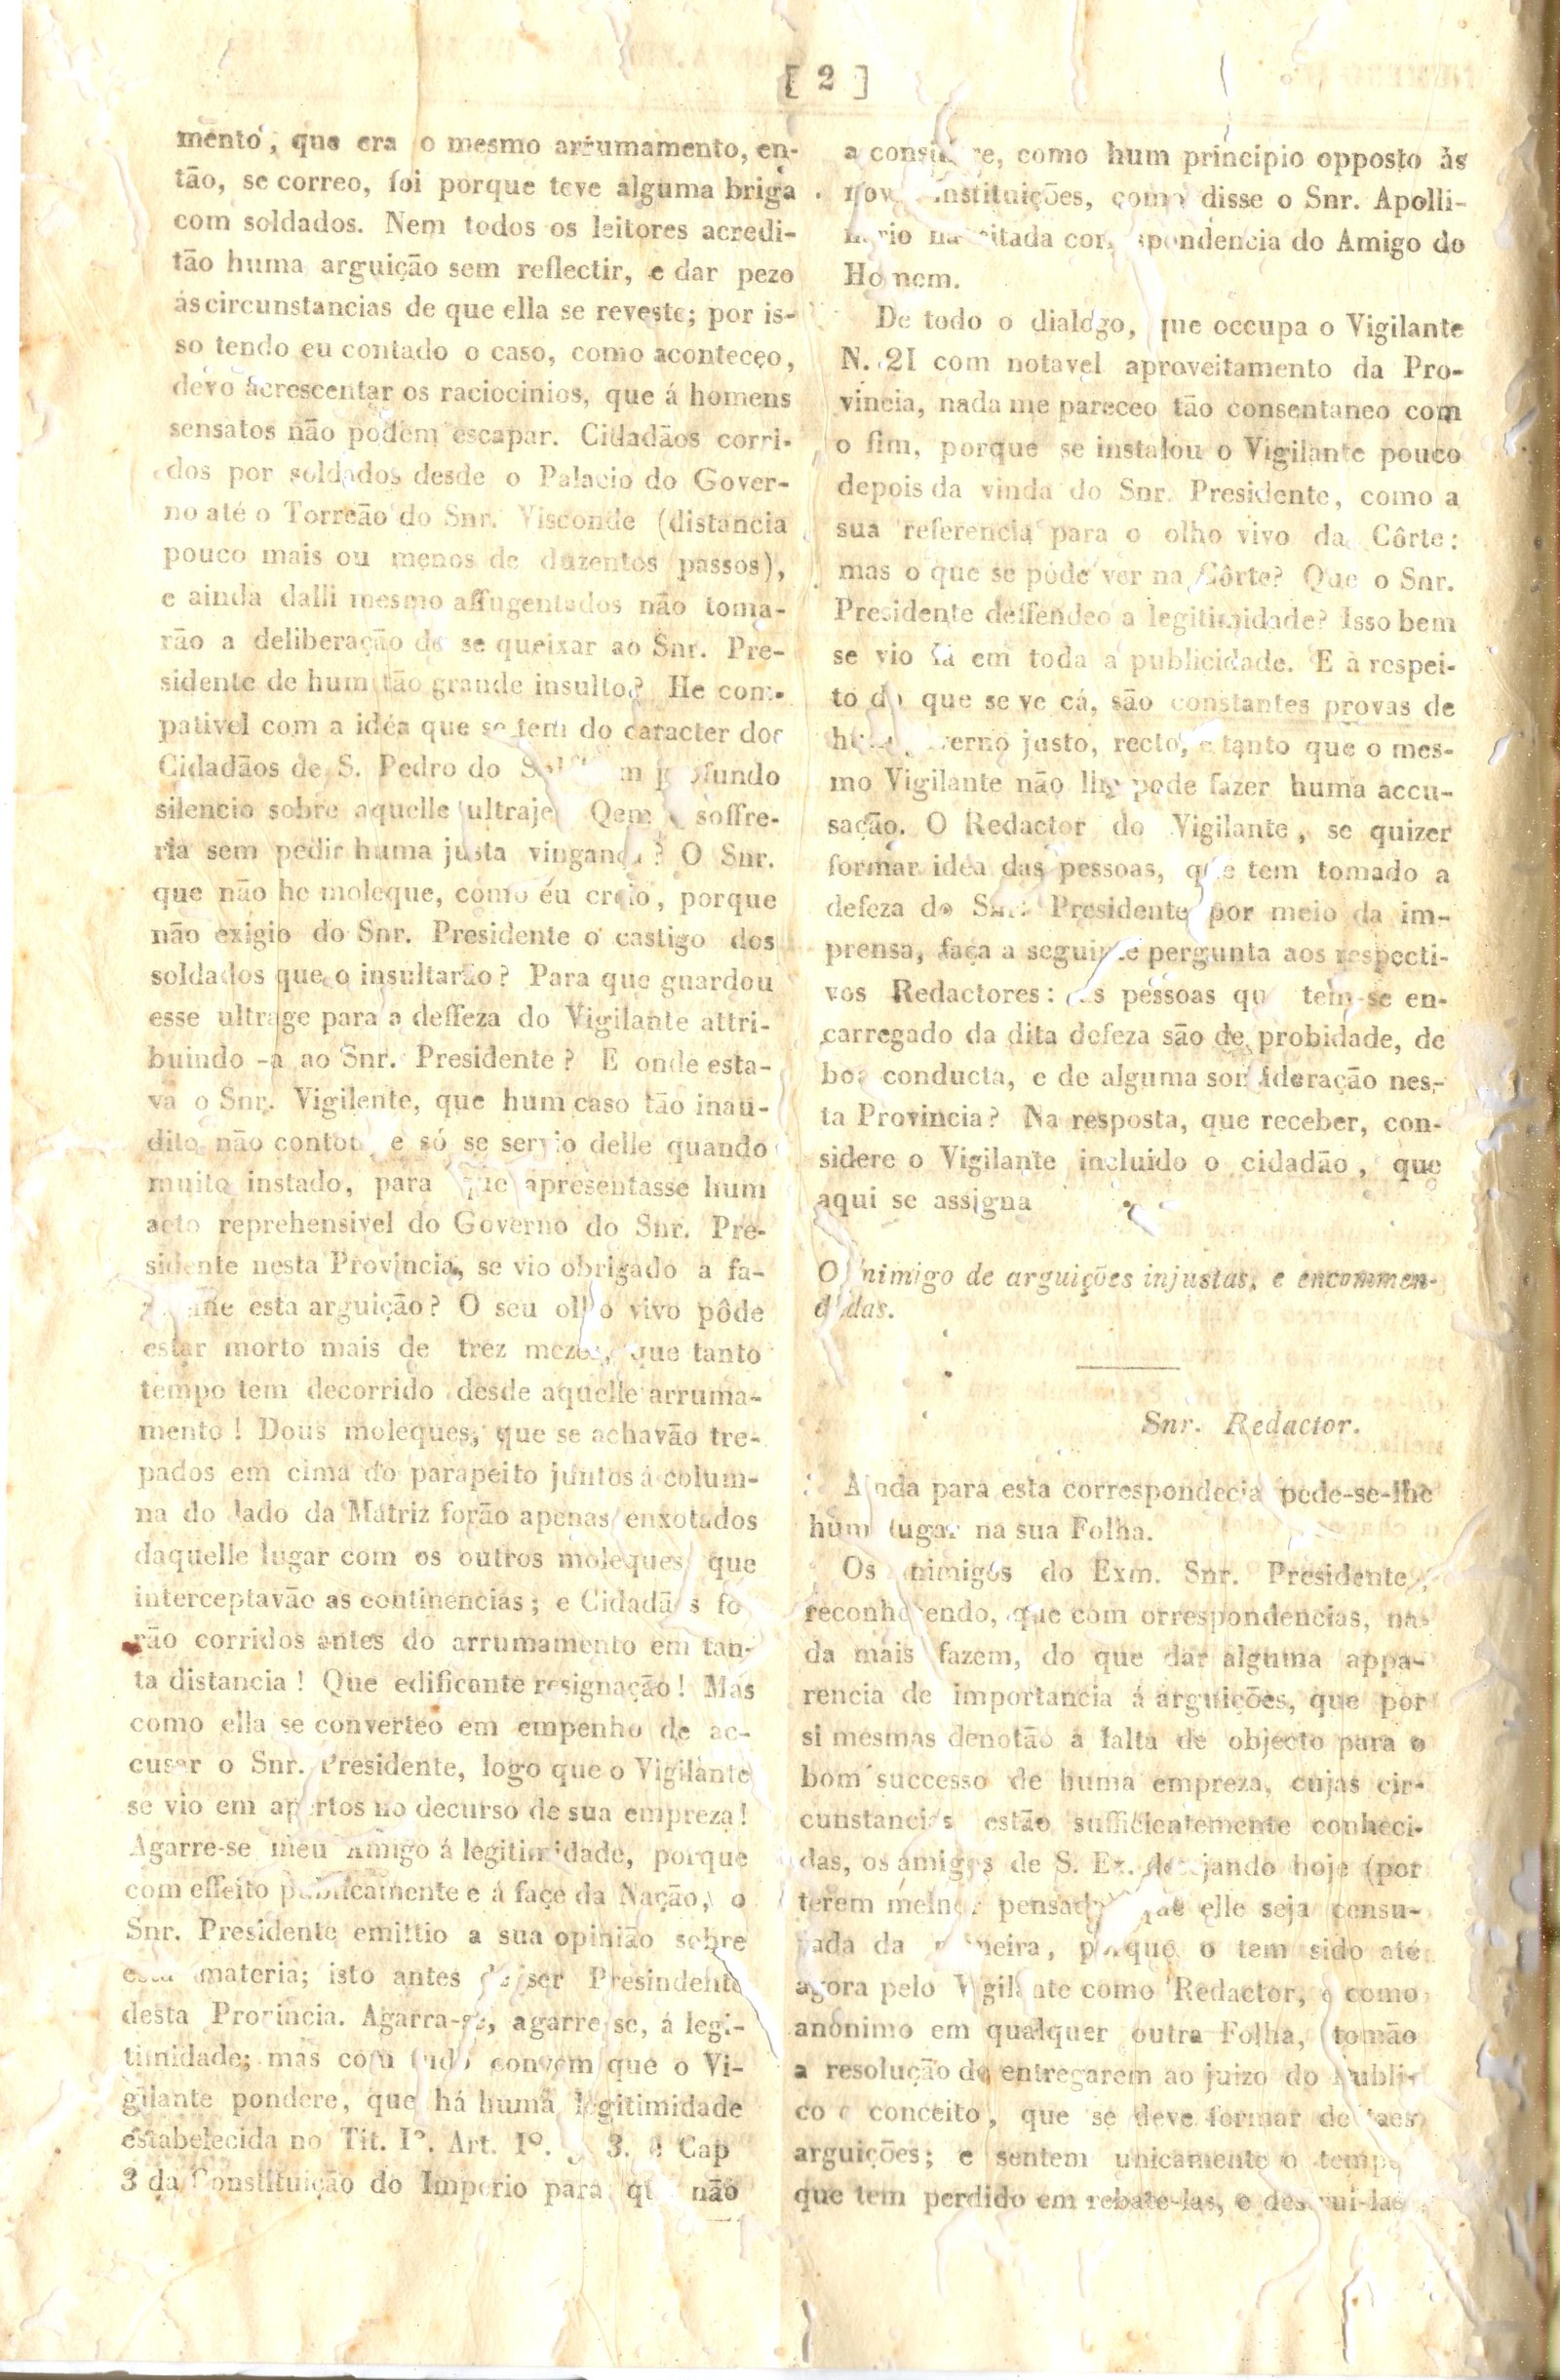 [ 2 ]
mento, que era o mesmo arrumamento, en-
tão, se correo, foi porque teve alguma briga
com soldados. Nem todos os leitores acredi-
tão huma arguição sem reflectir, e dar pezo
ás circunstancias de que ella se reveste; por is-
so tendo eu contado o caso, como aconteceo,
devo acrescentar os raciocinios, que á homens
sensatos não podem escapar. Cidadãos corri-
dos por soldados desde o Palacio do Gover-
no até o Torreão do Snr. Visconde (distancia
pouco mais ou menos de duzentos passos),
e ainda dalli mesmo affugentados não toma-
rão a deliberação de se queixar ao Snr. Pre-
sidente de hum tão grande insulto? He com-
pativel com a idéa que se tem do caracter dos
Cidadãos de S. Pedro do Sul profundo
silencio sobre aquelle ultraje Qem soffre-
ria sem pedir huma justa vingança? O Snr.
que não he moleque, como eu creio, porque
não exigio do Snr. Presidente o castigo dos
soldados que o insultarão? Para que guardou
esse ultrage para a deffeza do Vigilante attri-
buindo-a ao Snr. Presidente? E onde esta-
va o Snr. Vigilente, que hum caso tão inau-
dito não contou, e só se servio delle quando
muito instado, para que apresentasse hum
acto reprehensivel do Governo do Snr. Pre-
sidente nesta Provincia, se vio obrigado a fa-
esta arguição? O seu olho vivo pôde
estar morto mais de trez mezes, que tanto
tempo tem decorrido desde aquelle arruma-
mento! Dous moleques, que se achavão tre-
pados em cima do parapeito juntos á colum-
na do lado da Matriz forão apenas enxotados
daquelle lugar com os outros moleques que
interceptavão as continencias; e Cidadãos fo
rão corridos antes do arrumamento em tan-
ta distancia! Que edificante resignação! Mas
como ella se converteo em empenho de ac-
cusar o Snr. Presidente, logo que o Vigilante
se vio em apertos no decurso de sua empreza!
Agarre-se meu Amigo á legitimidade, porque
com effeito publicamente e á face da Nação, o
Snr. Presidente emittio a sua opinião sobre
esta materia; isto antes de ser Presindente
desta Provincia. Agarra-se, agarre-se, á legi-
timidade; mas com tudo convem que o Vi-
gilante pondere, que há huma legitimidade
estabelecida no Tit. 1º. Art. 1º. 3. e Cap
3 da Constituição do Imperio para que não
a considere, como hum principio opposto ás
novas instituições, como disse o Snr. Apolli-
nario na citada correspondencia do Amigo do
Homem.
De todo o dialogo, que occupa o Vigilante
N. 21 com notavel aproveitamento da Pro-
vincia, nada me pareceo tão consentaneo com
o fim, porque se instalou o Vigilante pouco
depois da vinda do Snr. Presidente, como a
sua referencia para o olho vivo da Côrte:
mas o que se póde ver na Côrte? Que o Snr.
Presidente deffendeo a legitimidade? Isso bem
se vio lá em toda a publicidade. E à respei-
to do que se ve cá, são constantes provas de
hum Governo justo, recto, e tanto que o mes-
mo Vigilante não lhe pode fazer huma accu-
sação. O Redactor do Vigilante, se quizer
formar idéa das pessoas, que tem tomado a
defeza do Snr. Presidente por meio da im-
prensa, faça a seguinte pergunta aos respecti-
vos Redactores: as pessoas que tem-se en-
carregado da dita defeza são de probidade, de
boa conducta, e de alguma consideração nes-
ta Provincia? Na resposta, que receber, con-
sidere o Vigilante incluido o cidadão, que
aqui se assigna
O inimigo de arguições injustas, e encommen-
dadas.
Snr. Redactor.
Ainda para esta correspondecia pede-se-lhe
hum lugar na sua Folha.
Os inimigos do Exm. Snr. Presidente,
reconhecendo, que com orrespondencias, na-
da mais fazem, do que dar alguma appa-
rencia de importancia á arguições, que por
si mesmas denotão a falta de objecto para o
bom successo de huma empreza, cujas cir-
cunstancias estão sufficientemente conheci-
das, os amigos de S. Ex. desejando hoje (por
terem melhor pensado) que elle seja censu-
rada da maneira, porque o tem sido até
agora pelo Vigilante como Redactor, e como
anonimo em qualquer outra Folha, tomão
a resolução de entregarem ao juizo do Publi-
co o conceito, que se deve formar de taes
arguições; e sentem unicamente o tempo
que tem perdido em rebate-las, e destrui-las